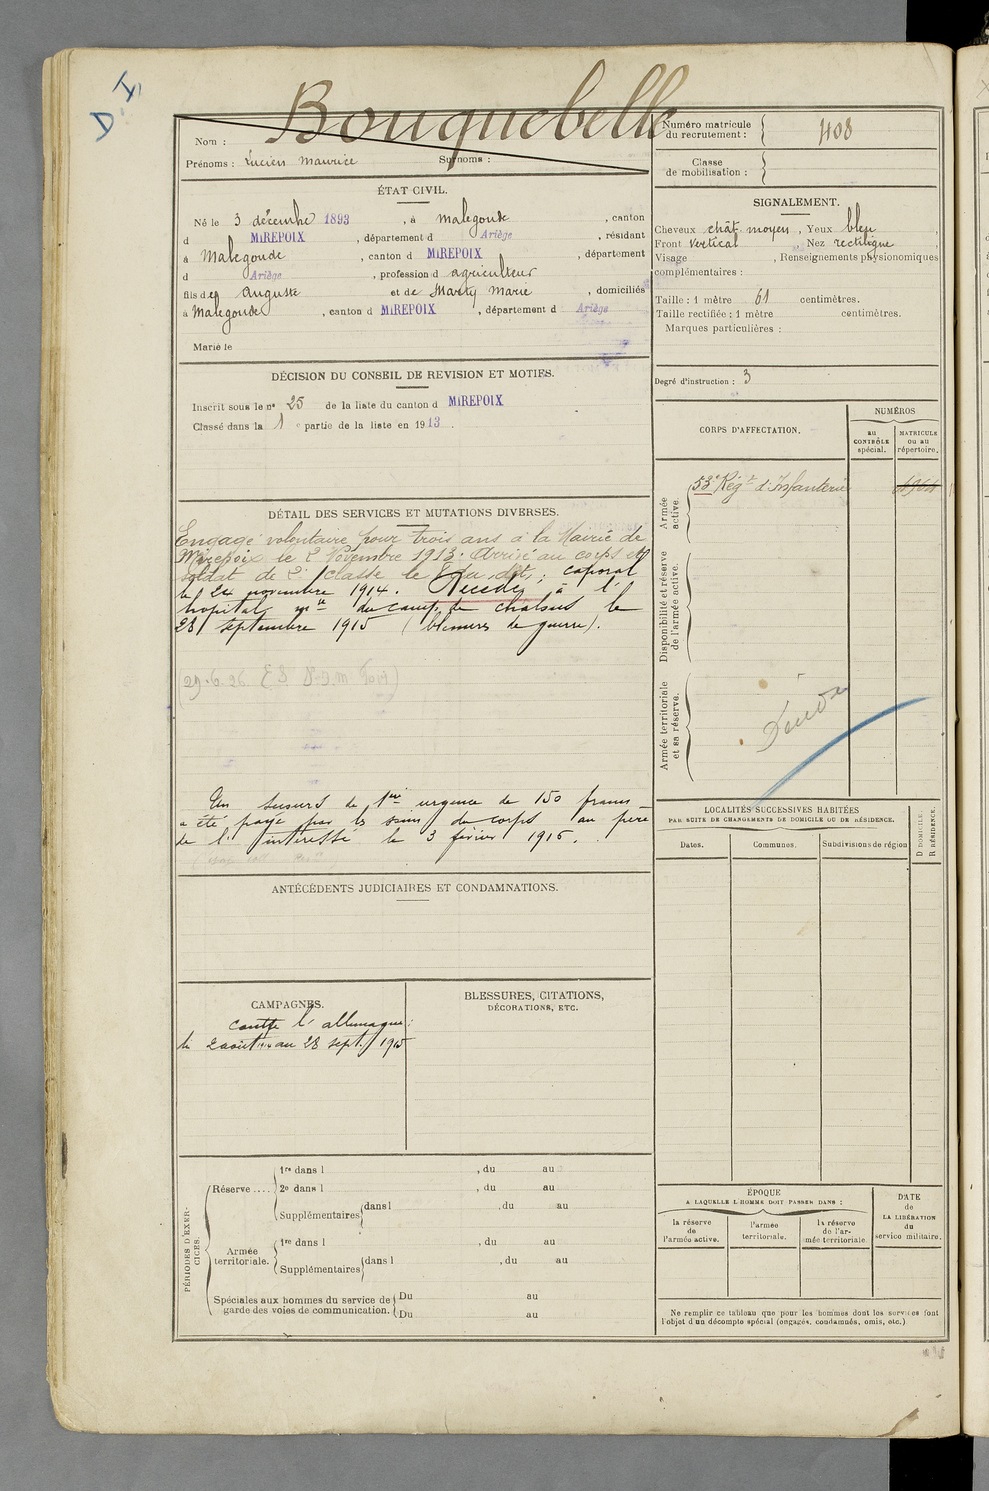 D. I.
Bouquebelle
Nom :
Prénoms : Lucien Maurice Surnoms :
Numéro matricule du recrutement : 408
Classe de mobilisation :
ÉTAT CIVIL.
Né le 3 décembre 1893, à Malegoude, canton
d MIREPOIX, département d Ariège, résidant
à Malegoude, canton d MIREPOIX, département
d Ariège, profession d agriculteur
fils d eu Auguste et de Marty Marie, domiciliés
à Malegoude, canton d MIREPOIX, département d Ariège
Marié le
SIGNALEMENT.
Cheveux chât. moyen, Yeux bleu,
Front vertical, Nez rectiligne,
Visage , Renseignements physionomiques
complémentaires :
Taille : 1 mètre 61 centimètres.
Taille rectifiée : 1 mètre centimètres.
Marques particulières :
Degré d'instruction : 3
DÉCISION DU CONSEIL DE REVISION ET MOTIFS.
Inscrit sous le n° 25 de la liste du canton d MIREPOIX
Classé dans la 1 e partie de la liste en 1913.
DÉTAIL DES SERVICES ET MUTATIONS DIVERSES.
Engagé volontaire pour trois ans à la Mairie de
Mirepoix le 2 Novembre 1913. Arrivé au corps et
soldat de 2e classe le dit, caporal
le 24 novembre 1914. Décédé à l'
hopital du camp de chalons le
28 septembre 1915 (blessures de guerre).
Un secours de 1ère urgence de 150 francs
a été payé par les soins du corps au père
de l'intéressé le 3 février 1916.
CORPS D'AFFECTATION.
NUMÉROS
au CONTRÔLE spécial.
MATRICULE ou au répertoire.
Armée active.
53e Régt d'Infanterie
Disponibilité et réserve de l'armée active.
Armée territoriale et sa réserve.
LOCALITÉS SUCCESSIVES HABITÉES
PAR SUITE DE CHANGEMENTS DE DOMICILE OU DE RÉSIDENCE.
Dates.
Communes.
Subdivisions de région
D DOMICILE.
R RÉSIDENCE.
ANTÉCÉDENTS JUDICIAIRES ET CONDAMNATIONS.
CAMPAGNES.
contre l'allemagne :
du 2 août 1914 au 28 sept. 1915
BLESSURES, CITATIONS,
DÉCORATIONS, ETC.
PÉRIODES D'EXER-
CICES.
Réserve ....
1re dans l , du au
2e dans l , du au
Supplémentaires dans l , du au
Armée territoriale.
1re dans l , du au
Supplémentaires dans l , du au
Spéciales aux hommes du service de garde des voies de communication.
Du au
Du au
ÉPOQUE
A LAQUELLE L'HOMME DOIT PASSER DANS :
la réserve de l'armée active.
l'armée territoriale.
la réserve de l'armée territoriale.
DATE
de
LA LIBÉRATION
du
service militaire.
Ne remplir ce tableau que pour les hommes dont les services font
l'objet d'un décompte spécial (engagés, condamnés, omis, etc.)